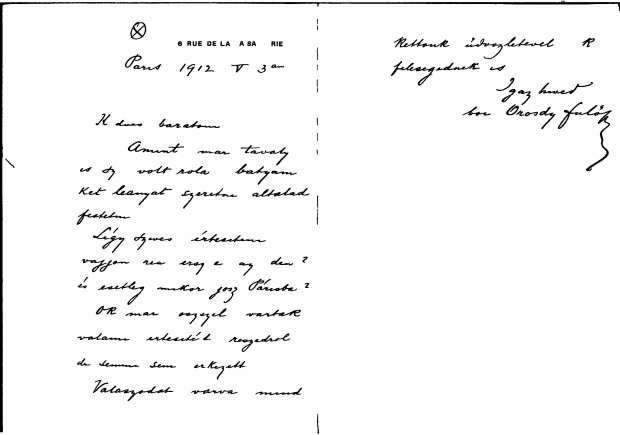 6 RUE DE LA A SA RIE
Paris 1912 V 3 an
K dves baratom
Amint mar tavaly
is volt rola batyam
Ket leanyat szeretne altalad
festetni
Légy szives értesitem
vajjon rea ersz e az iden?
és esetleg mikor josz Párisba?
OK mar oszszel vartak
valami ertesitést reszedrol
de semmi sem erkezett
Valaszodat varva mind
Kettonk üdvozletevel K
felesegednek is
Igaz hived
bor Orosdy Fulöp